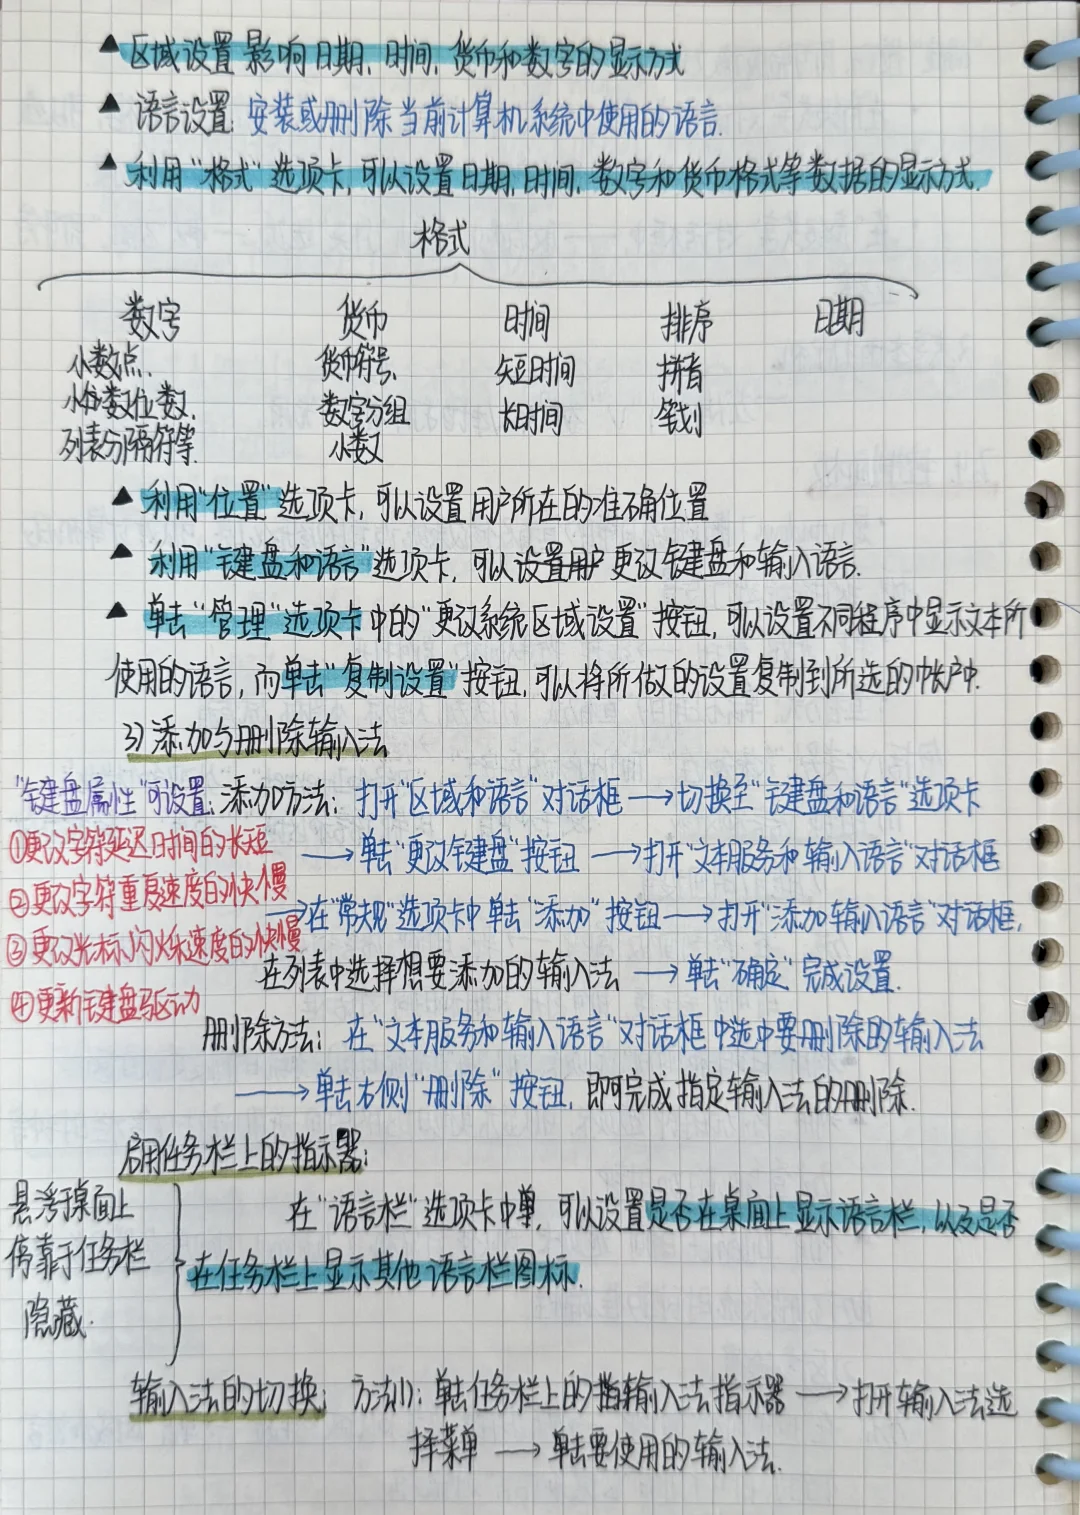 ▲区域设置影响日期、时间、货币和数字的显示方式
▲语言设置:安装或删除当前计算机系统中使用的语言.
▲利用“格式”选项卡,可以设置日期、时间、数字和货币格式等数据的显示方式.
格式
数字 货币 时间 排序 日期
小数点、 货币符号、 短时间 拼音
小数位数、 数字分组 长时间 笔划
列表分隔符等. 小数
▲利用“位置”选项卡,可以设置用户所在的准确位置
▲利用“键盘和语言”选项卡,可以设置用户更改键盘和输入语言.
▲单击“管理”选项卡中的“更改系统区域设置”按钮,可以设置不同程序中显示文本所
使用的语言,而单击“复制设置”按钮,可以将所做的设置复制到所选的帐户中.
3)添加与删除输入法
“键盘属性”可设置:
①更改字符延迟时间的长短
②更改字符重复速度的快慢
③更改光标闪烁速度的快慢
④更新键盘驱动
添加方法:打开“区域和语言”对话框→切换至“键盘和语言”选项卡
→单击“更改键盘”按钮→打开“文本服务和输入语言”对话框
→在“常规”选项卡中单击“添加”按钮→打开“添加输入语言”对话框,
在列表中选择想要添加的输入法→单击“确定”完成设置.
删除方法:在“文本服务和输入语言”对话框中选中要删除的输入法
→单击右侧“删除”按钮,即可完成指定输入法的删除.
启用任务栏上的指示器:
悬浮于桌面上
停靠于任务栏
隐藏.
在“语言栏”选项卡中单,可以设置是否在桌面上显示语言栏,以及是否
在任务栏上显示其他语言栏图标.
输入法的切换:方法(1):单击任务栏上的指输入法指示器→打开输入法选
择菜单→单击要使用的输入法.